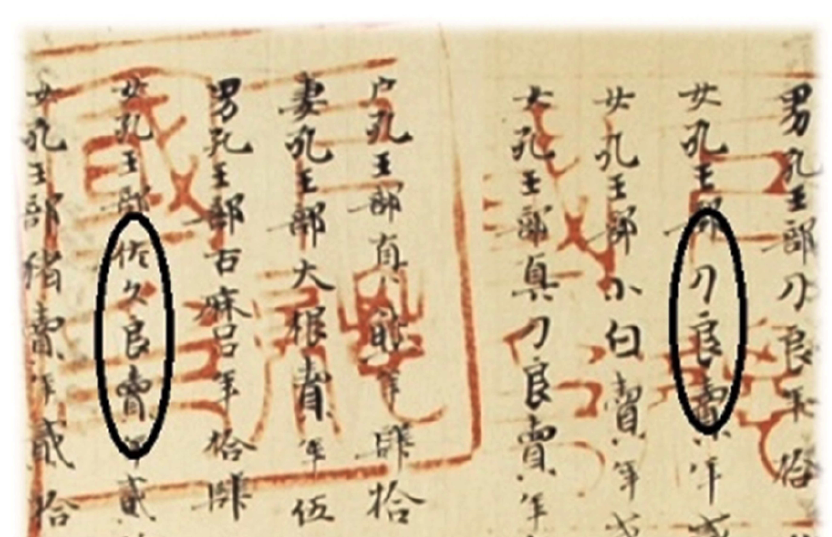 男孔王部刀良年拾
女孔王部刀良賣年
女孔王部小白賣年
女孔王部真刀良賣年
戸孔王部真年肆拾
妻孔王部大根賣年伍
男孔王部古麻呂年拾肆
女孔王部佐久良賣年貳
女孔王部猪賣年貳拾